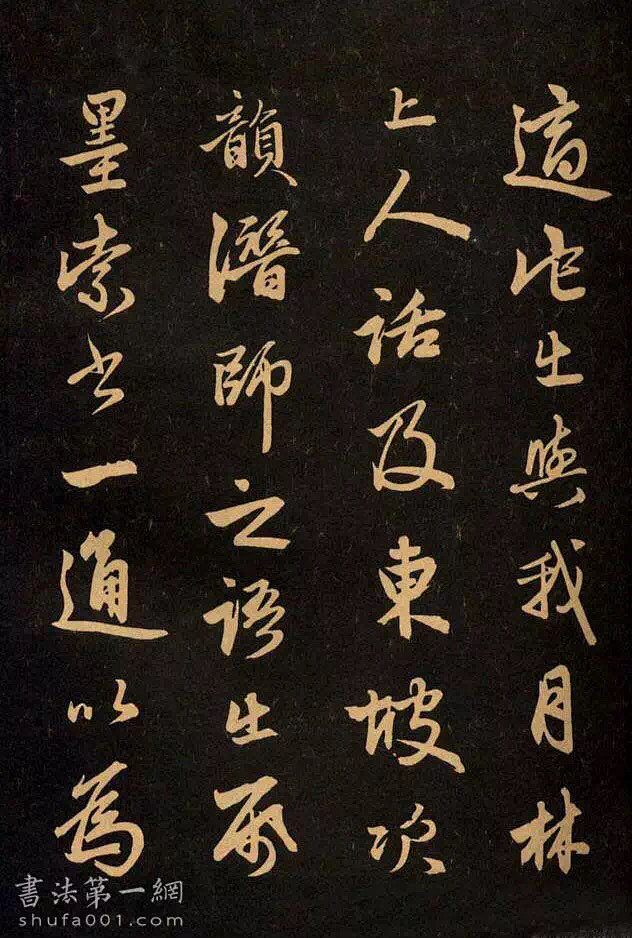 適出與我月林
上人話及東坡次
韻潛師之語出帋
墨索書一通以為
書法第一網
shufa001.com